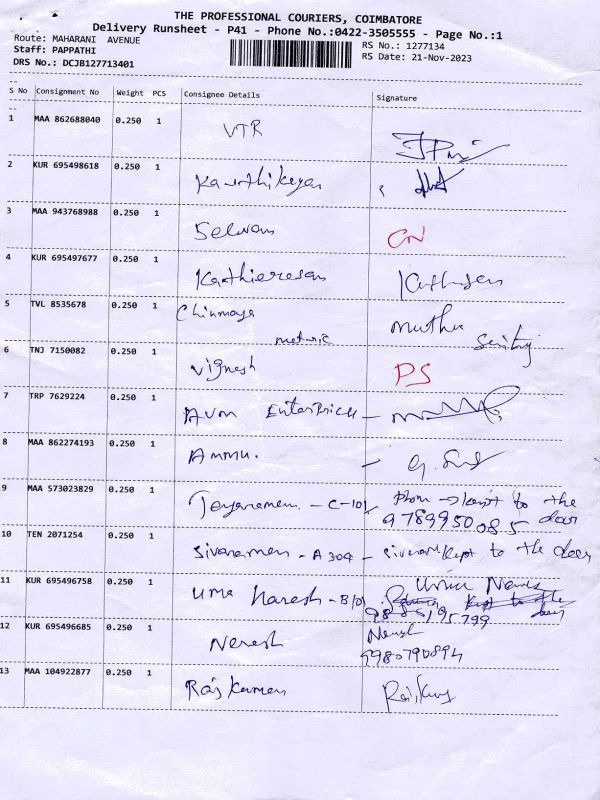 THE PROFESSIONAL COURIERS, COIMBATORE
Delivery Runsheet - P41 - Phone No.:0422-3505555 - Page No.:1
Route: MAHARANI AVENUE
RS No.: 1277134
Staff: PAPPATHI
RS Date: 21-Nov-2023
DRS No.: DCJB127713401
S No Consignment No Weight PCS Consignee Details Signature
1 MAA 862688040 0.250 1 VTR
2 KUR 695498618 0.250 1 Karthikeyan
3 MAA 943768988 0.250 1 Selvam
4 KUR 695497677 0.250 1
5 TVL 8535678 0.250 1 Chinmaya muthu
metric
6 TNJ 7150082 0.250 1 Vignesh PS
7 TRP 7629224 0.250 1 AVM
8 MAA 862274193 0.250 1 Ammu.
9 MAA 573023829 0.250 1 Jeyaraman - C-101 to the door
9789950085
10 TEN 2071254 0.250 1 Sivaraman - A 304 - kept to the door
11 KUR 695496758 0.250 1 Uma Naresh - B/01
12 KUR 695496685 0.250 1 Naresh
9980790894
13 MAA 104922877 0.250 1 Raj Kumar